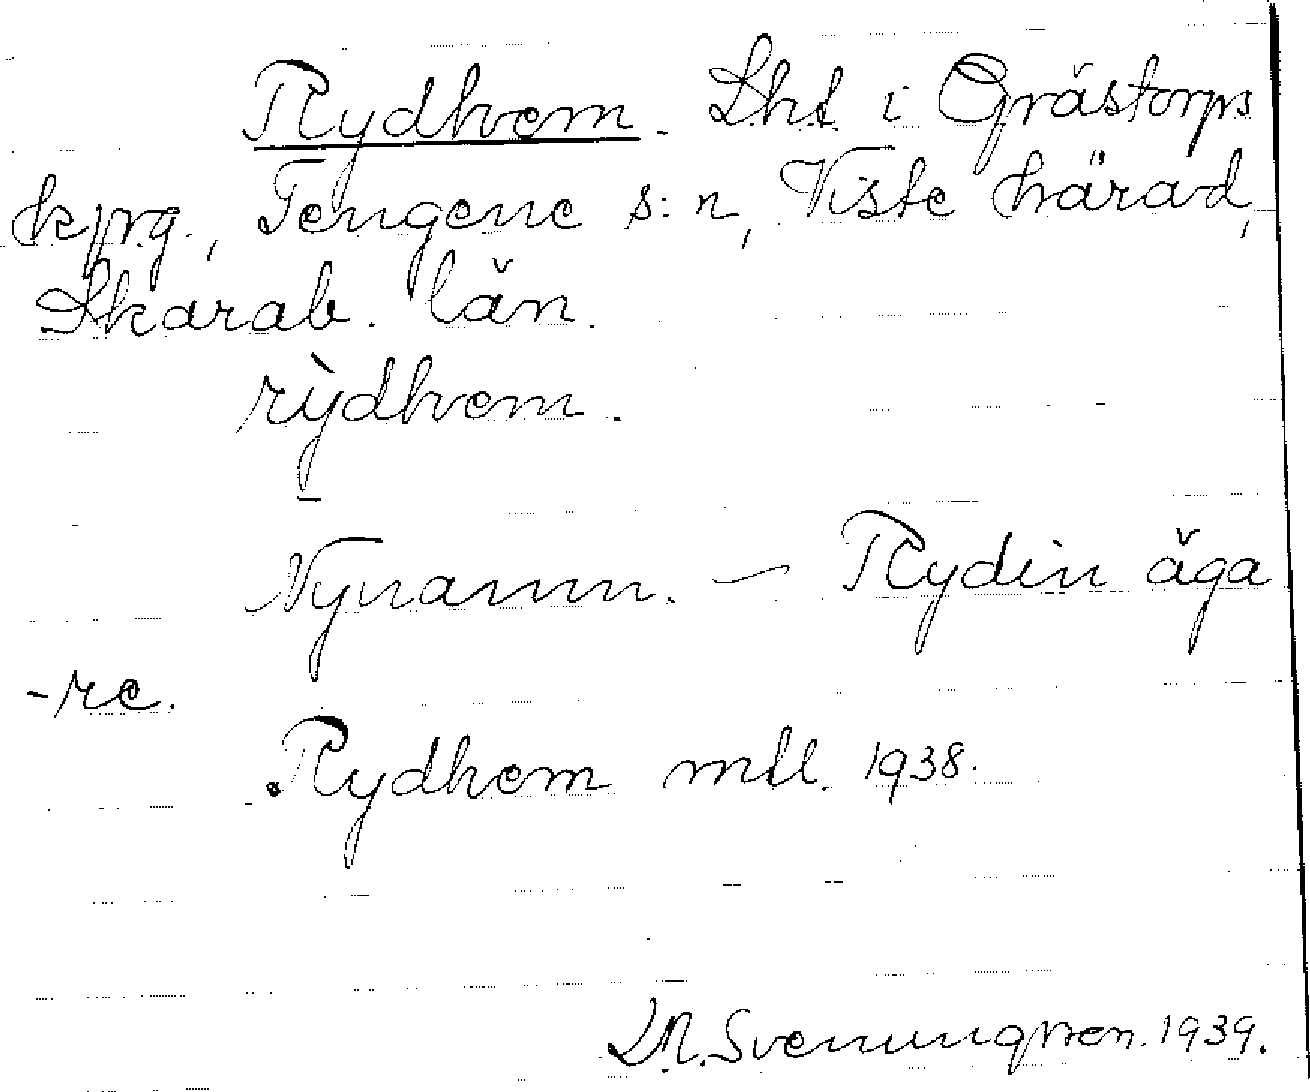 Rydhem. Lht i Grästorps
kpg., Tengene s:n, Viste härad,
Skarab. län.
rỳdhem.
Nynamn. — Rydin äga
-re.
Rydhem mtl. 1938.
Svenungsson. 1939.